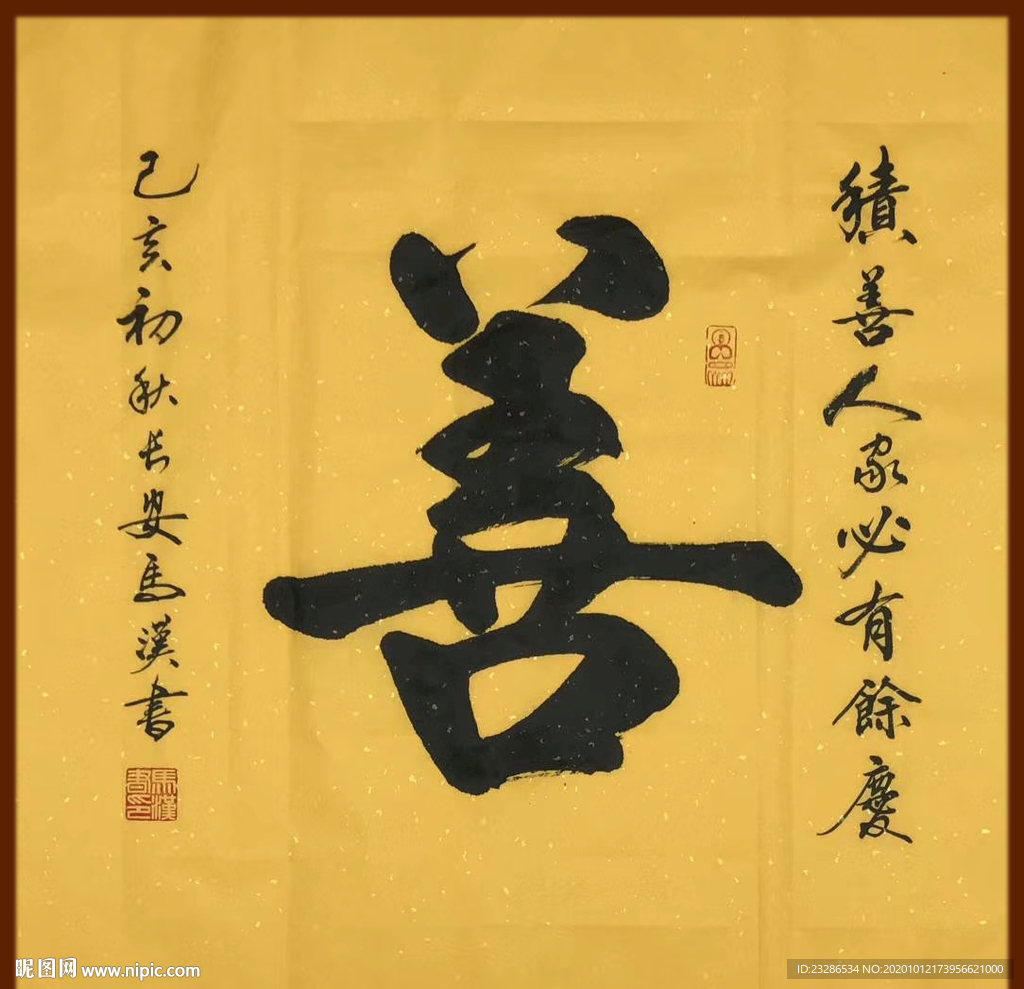 積善人家必有餘慶
善
己亥初秋长安马漢書
馬漢書印
昵图网 www.nipic.com
ID:23286534 NO:20201012173956621000